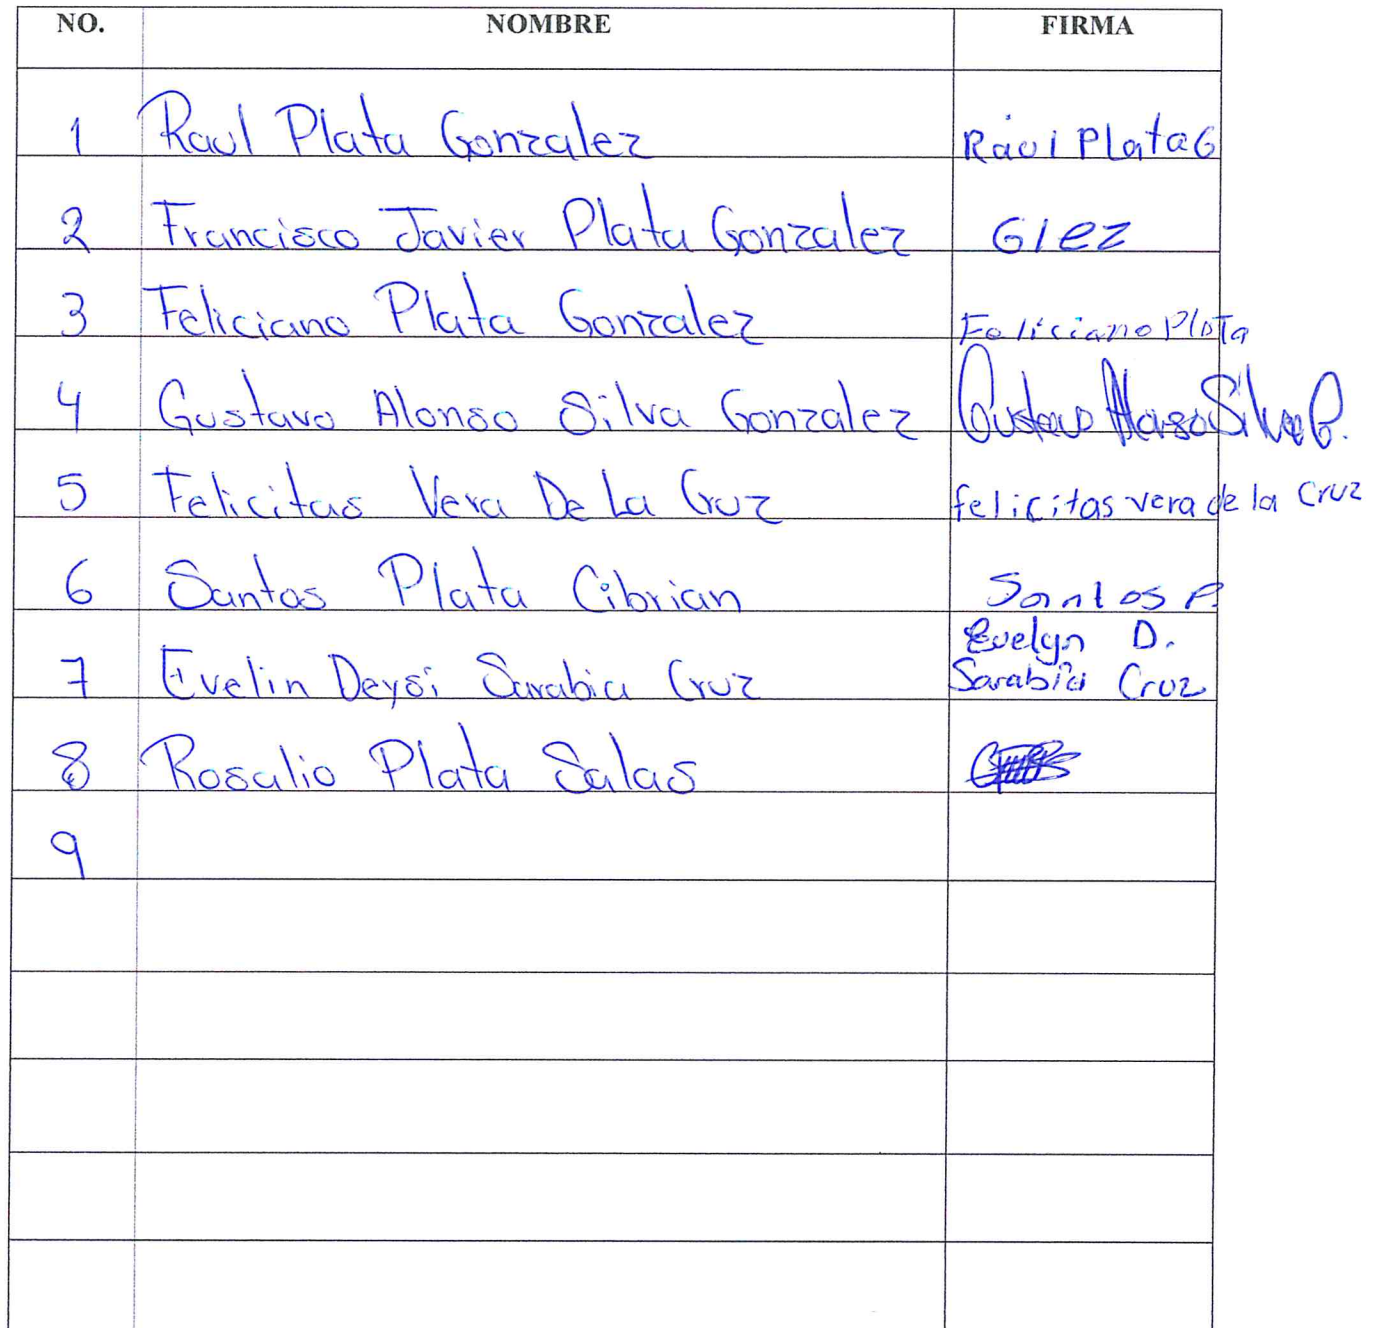 NO. NOMBRE FIRMA
1 Raul Plata Gonzalez Rául Plata G
2 Francisco Javier Plata Gonzalez Glez
3 Feliciano Plata Gonzalez Feliciano Plata
4 Gustavo Alonso Silva Gonzalez Gustavo Alonso Silva G.
5 Felicitas Vera De La Cruz felicitas vera de la Cruz
6 Santos Plata Cibrian Santos P.
Evelyn D.
7 Evelin Deysi Sarabia Cruz Sarabia Cruz
8 Rosalio Plata Salas
9